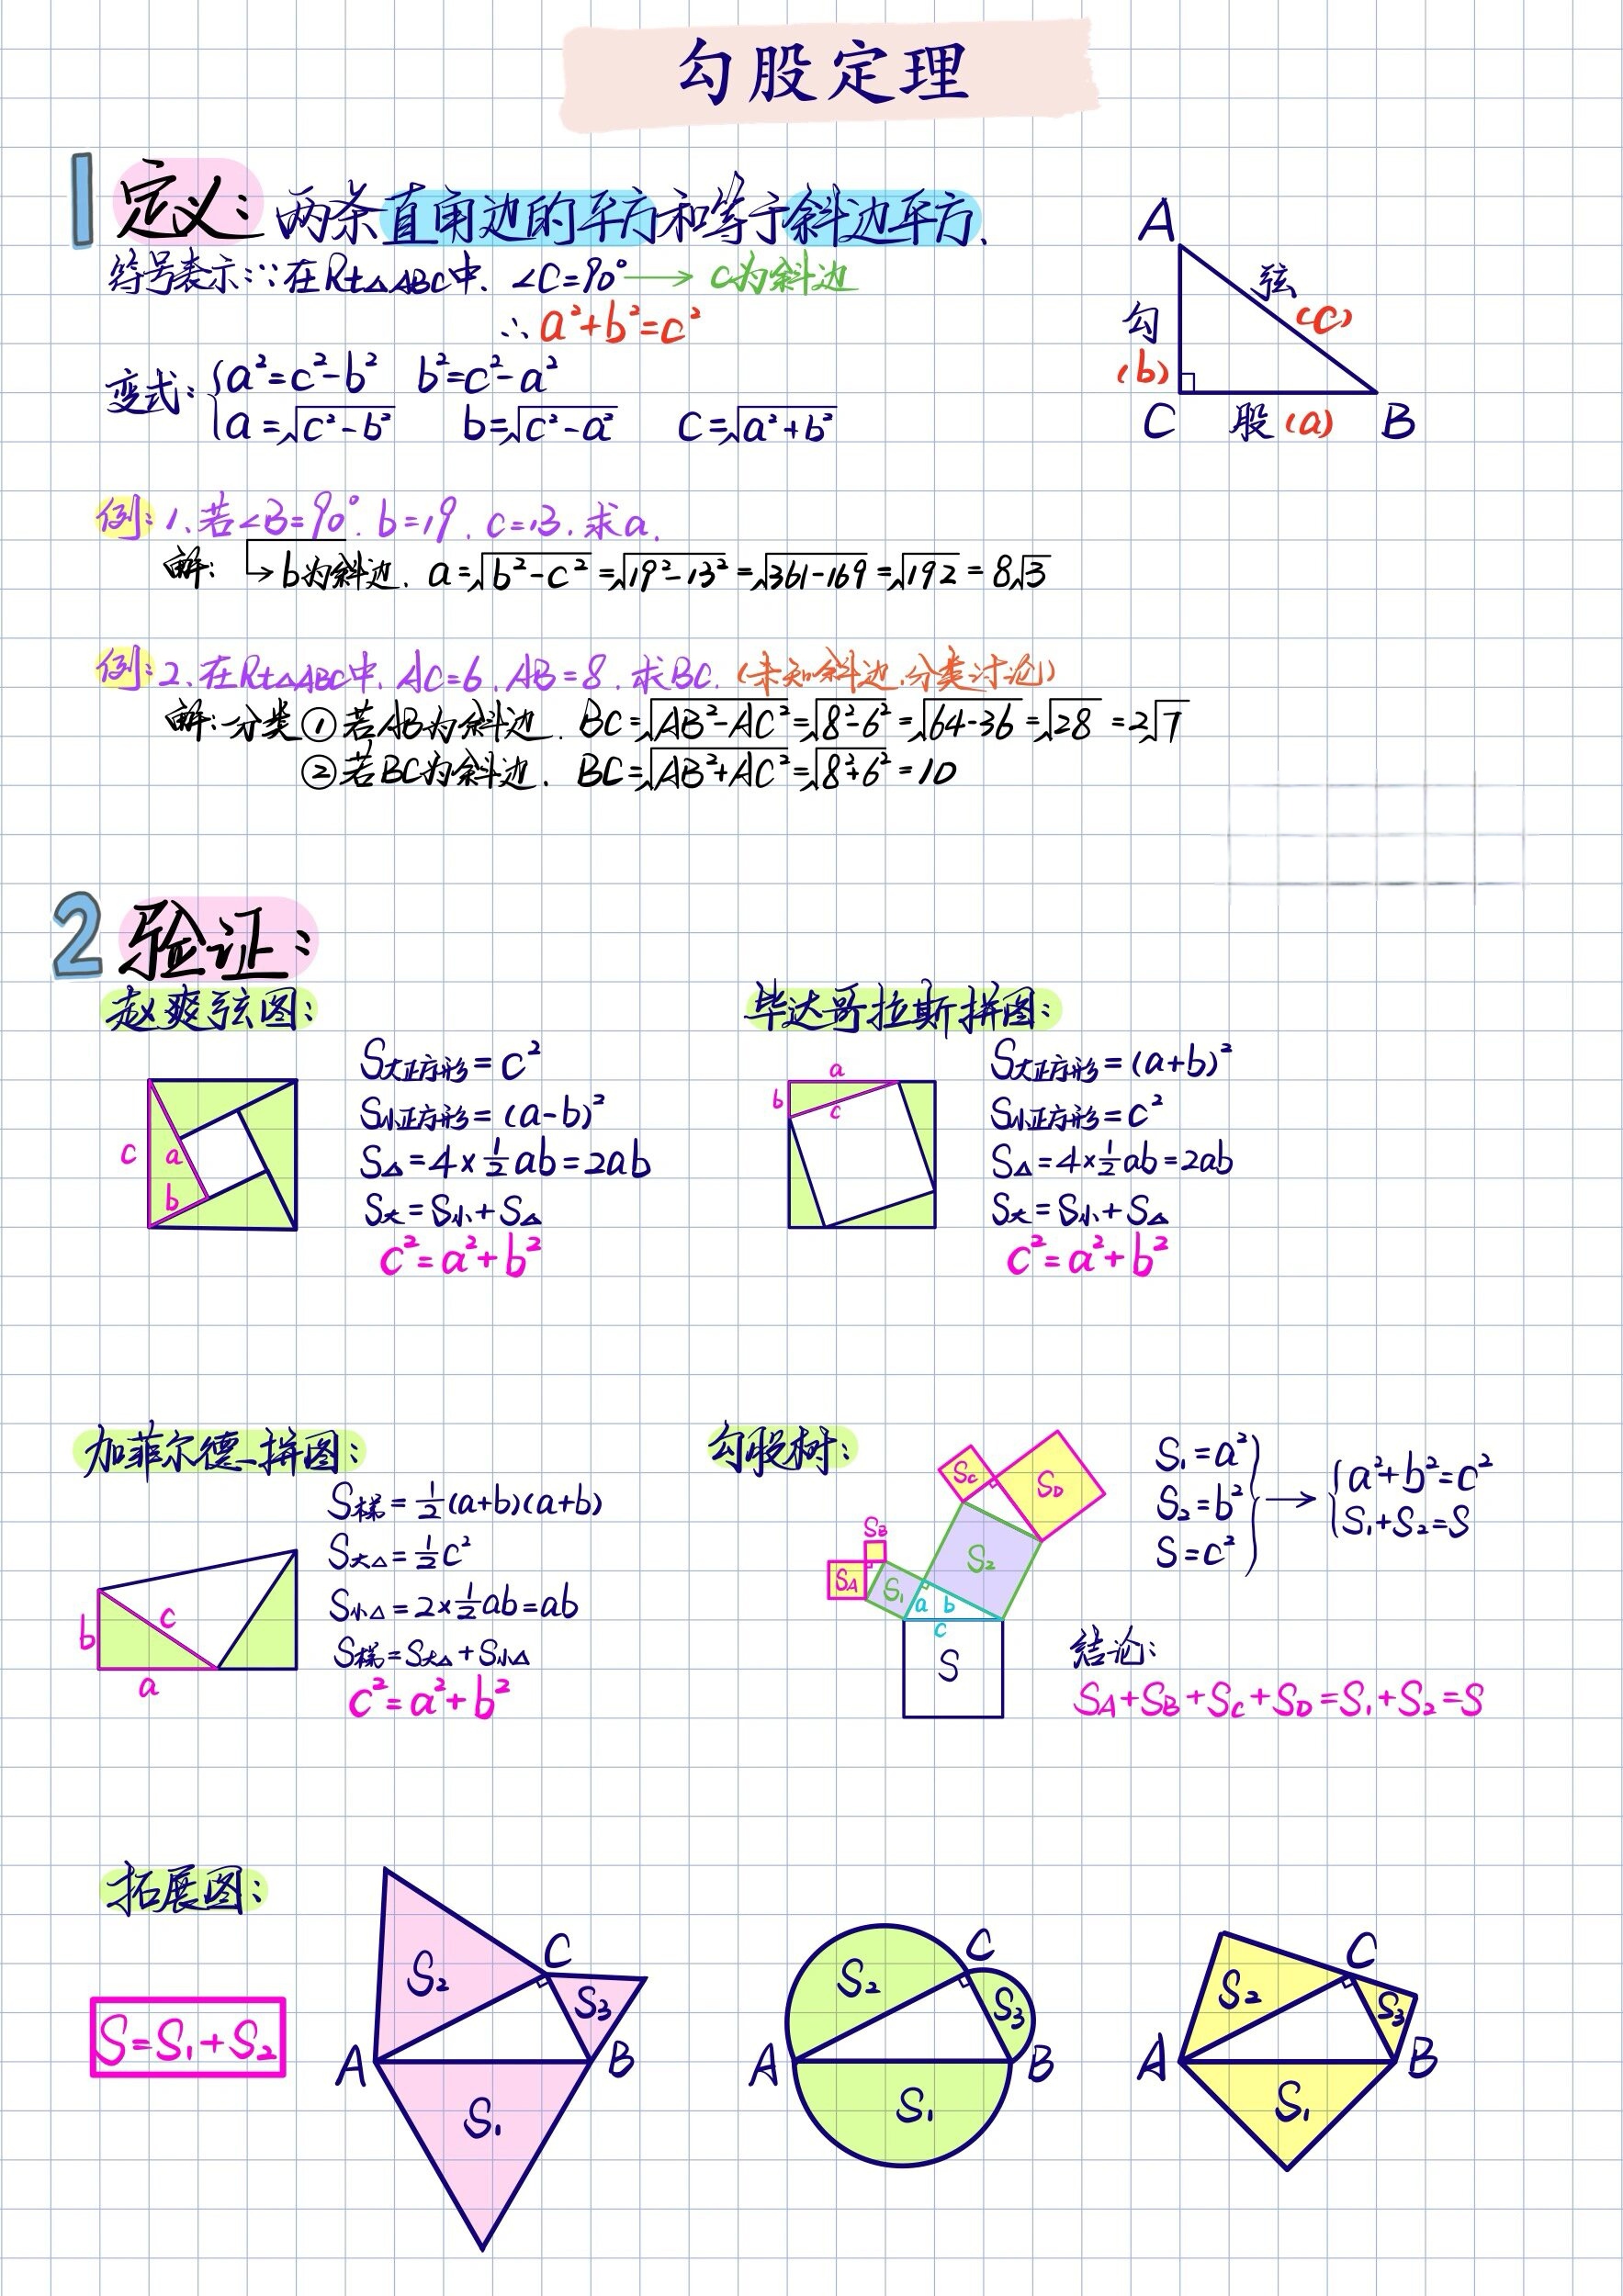 勾股定理
1 定义：两条直角边的平方和等于斜边平方、
符号表示：∵在Rt△ABC中、∠C=90°→c为斜边
∴a²+b²=c²
变式：{a²=c²-b² b²=c²-a²
a=√(c²-b²) b=√(c²-a²) c=√(a²+b²)
A
弦
(c)
勾
(b)
C 股(a) B
例：1、若∠B=90°. b=19. c=13. 求a.
解：↳b为斜边. a=√(b²-c²)=√(19²-13²)=√(361-169)=√192=8√3
例：2、在Rt△ABC中. AC=6. AB=8. 求BC.(未知斜边.分类讨论)
解：分类①若AB为斜边. BC=√(AB²-AC²)=√(8²-6²)=√(64-36)=√28=2√7
②若BC为斜边. BC=√(AB²+AC²)=√(8²+6²)=10
2 验证：
赵爽弦图：
c
a
b
S大正方形=c²
S小正方形=(a-b)²
S△=4×½ab=2ab
S大=S小+S△
c²=a²+b²
毕达哥拉斯拼图：
a
b
c
S大正方形=(a+b)²
S小正方形=c²
S△=4×½ab=2ab
S大=S小+S△
c²=a²+b²
加菲尔德拼图：
b
c
a
S梯=½(a+b)(a+b)
S大△=½c²
S小△=2×½ab=ab
S梯=S大△+S小△
c²=a²+b²
勾股树：
Sc
SD
SB
SA
S₁
S₂
a b
c
S
S₁=a²
S₂=b²
S=c²
}→{a²+b²=c²
S₁+S₂=S
结论：
SA+SB+Sc+SD=S₁+S₂=S
拓展图：
S=S₁+S₂
S₂
C
S₃
A
B
S₁
S₂
C
S₃
A
B
S₁
S₂
C
S₃
A
B
S₁